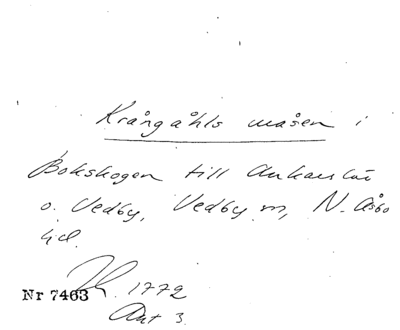 Krångåhls måsen i
Bokskogen till
o. Vedby, Vedby sn, N. Åsbo
hd.
1772
Nr 7463
Akt 3